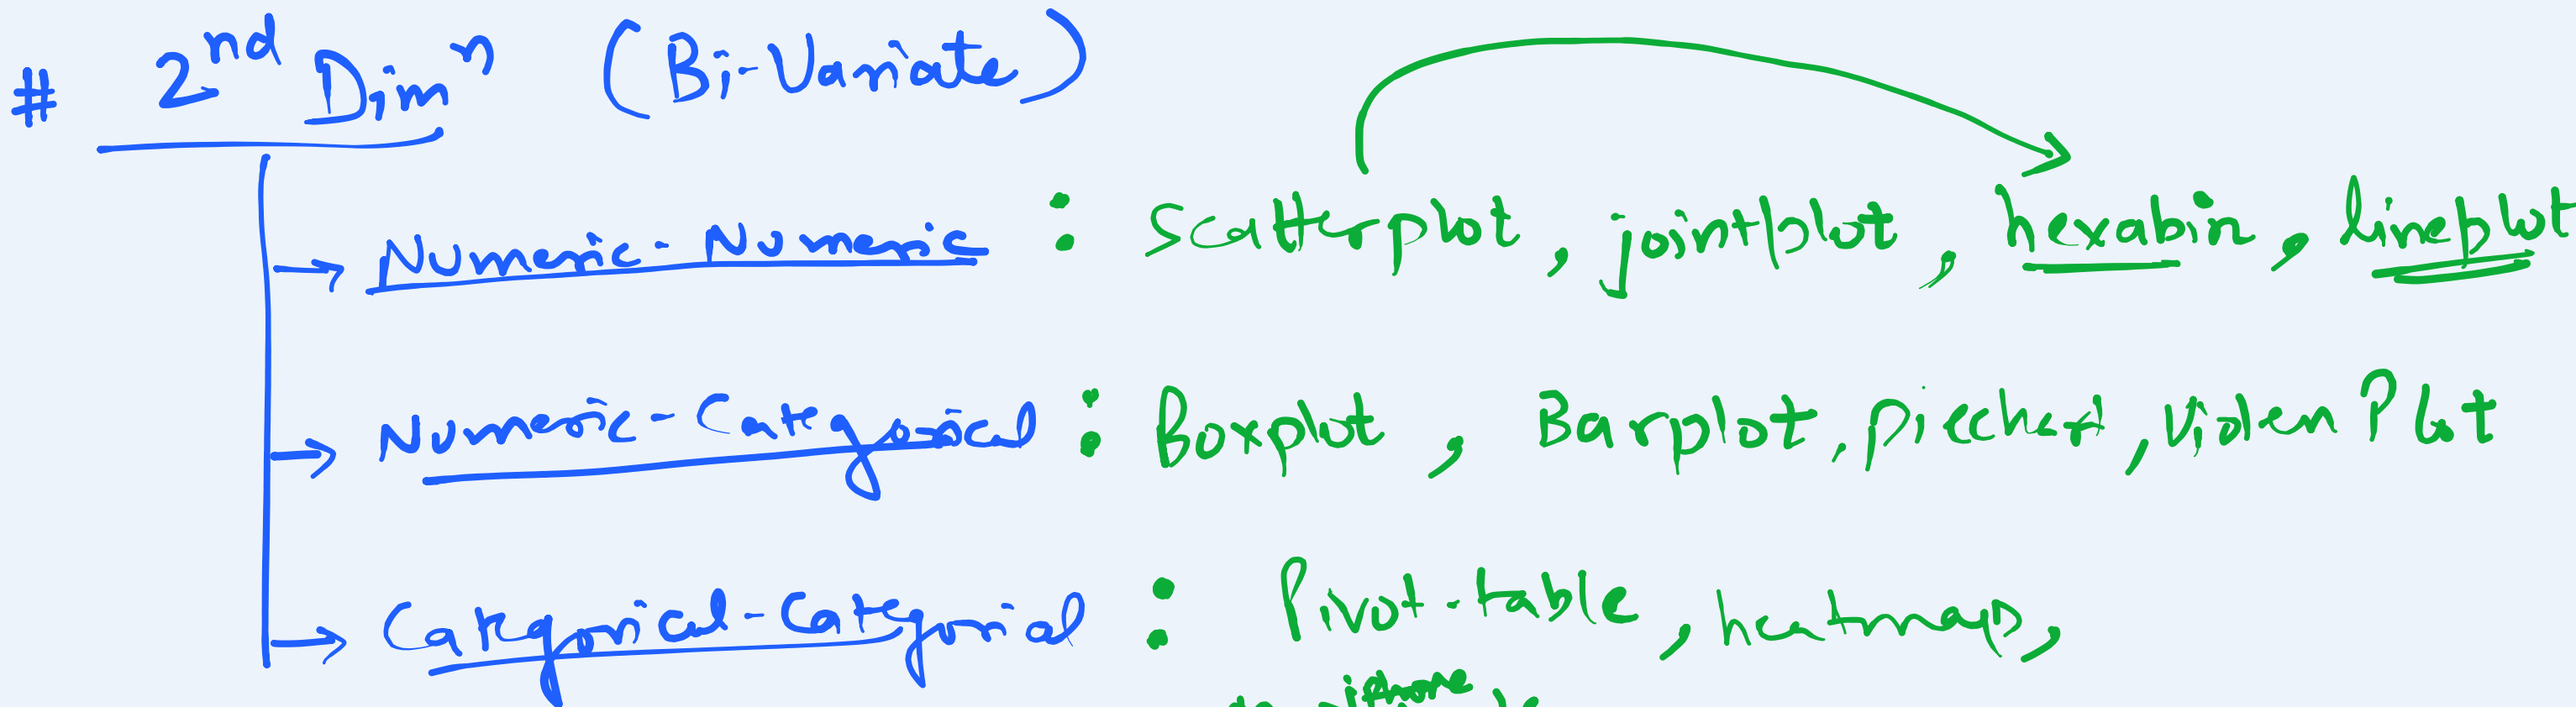 # 2nd Dimn (Bi-Variate)
Numeric-Numeric : Scatterplot, jointplot, hexabin, lineplot
Numeric-Categorical : Boxplot, Barplot, piechart, violen Plot
Categorical-Categorical : Pivot-table, heatmaps,
iphone